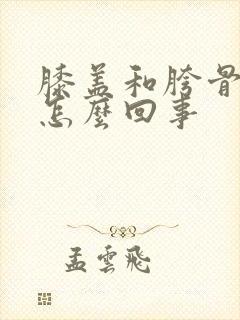 膝盖和胯骨
怎麼回事
孟雲飛